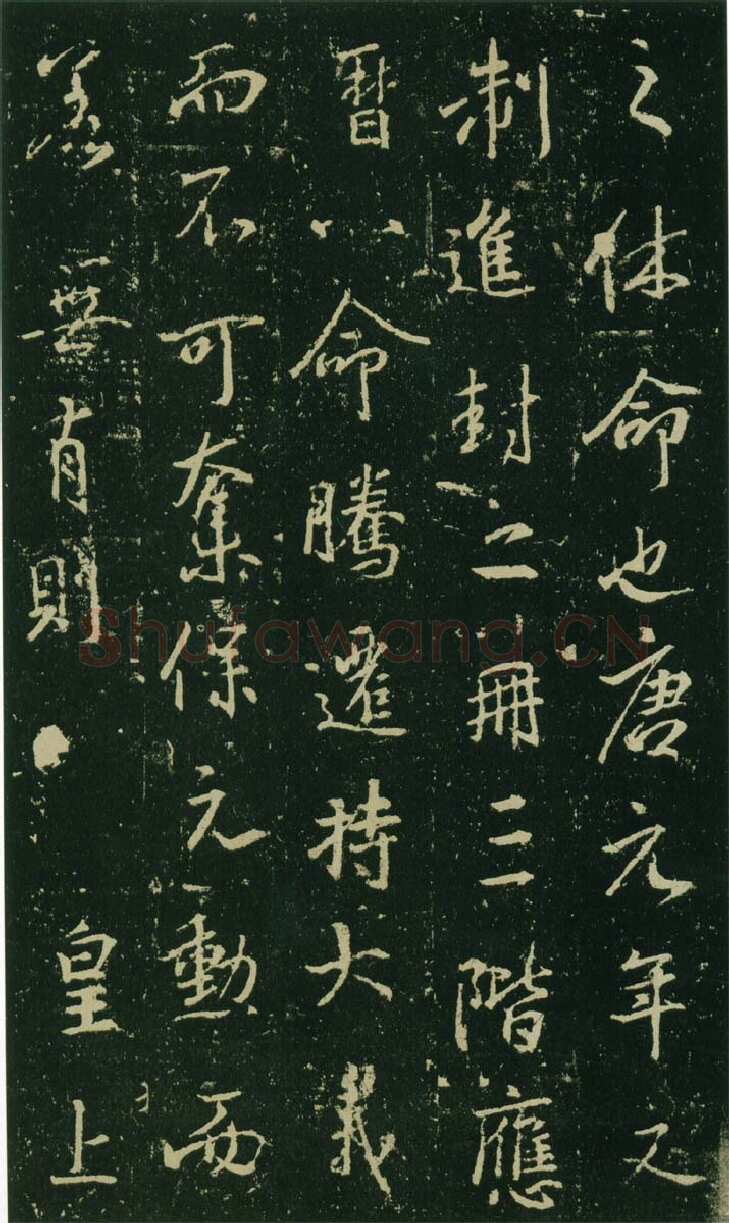 之休命也唐元年又
制進封二冊三階應
暦八命騰遷持大義
而不可奪保元勳而
無 則 皇上
Shufawang.CN